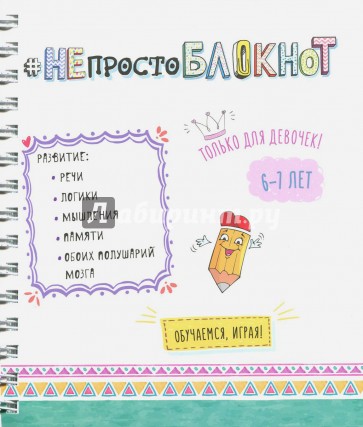 #НЕпростоБЛОКНоТ
ТОЛЬКО ДЛЯ ДЕВОЧЕК!
6-7 ЛЕТ
РАЗВИТИЕ:
• РЕЧИ
• ЛОГИКИ
• МЫШЛЕНИЯ
• ПАМЯТИ
• ОБОИХ ПОЛУШАРИЙ
МОЗГА
Лабиринт.ру
ОБУЧАЕМСЯ, ИГРАЯ!